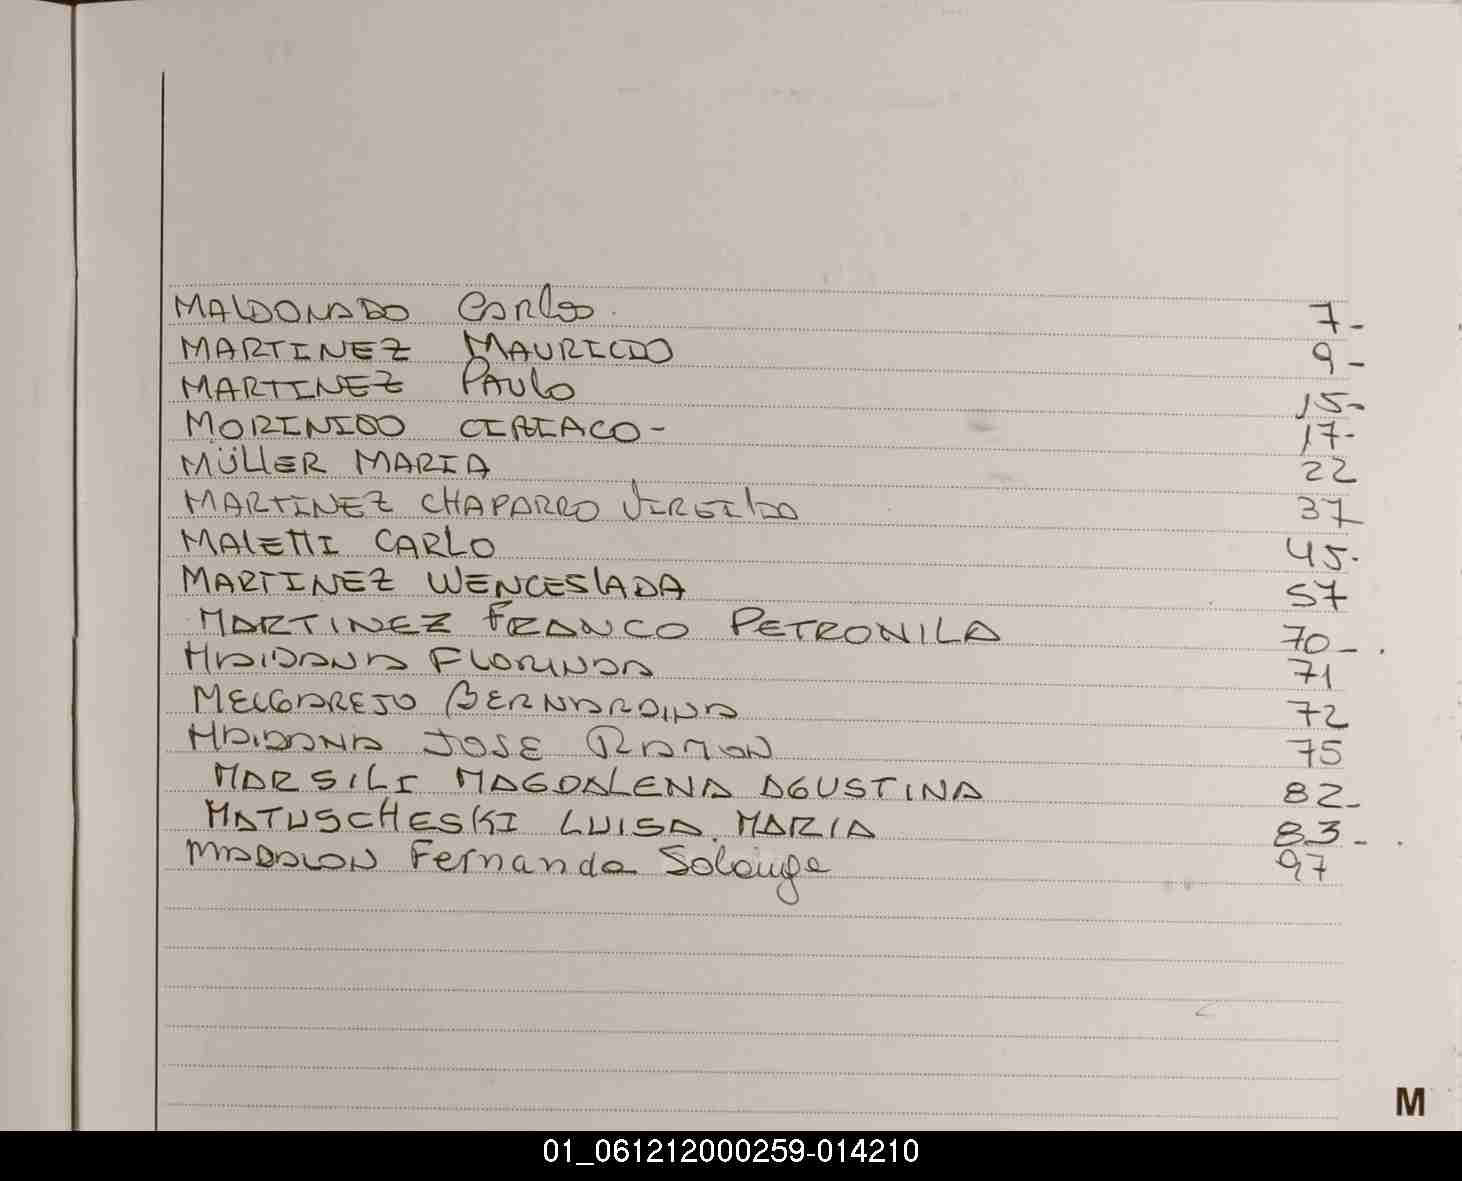 MALDONADO Carlos 7-
MARTINEZ MAURICIO 9-
MARTINEZ PAULO 15-
MORINIGO CIRIACO- 17-
MÜLLER MARIA 22
MARTINEZ CHAPARRO VIRGILDO 37
MALETTI CARLO 45-
MARTINEZ WENCESLADA 57
MARTINEZ FRANCO PETRONILA 70-.
MAIDANA FLORINDA 71
MELGAREJO BERNARDINA 72
MAIDANA JOSE RAMON 75
MARSILI MAGDALENA AGUSTINA 82-
MATUSCHESKI LUISA MARIA 83-.
MADALON Fernanda Solange 97
M
01_061212000259-014210